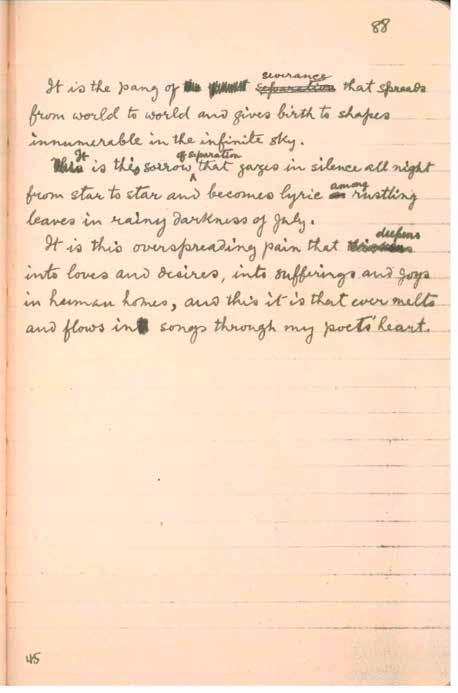 88
It is the pang of severance separation that spreads
from world to world and gives birth to shapes
innumerable in the infinite sky.
It is this sorrow of separation that gazes in silence all night
from star to star and becomes lyric among rustling
leaves in rainy darkness of July.
It is this overspreading pain that deepens
into loves and desires, into sufferings and joys
in human homes, and this it is that ever melts
and flows in songs through my poet's heart.
45